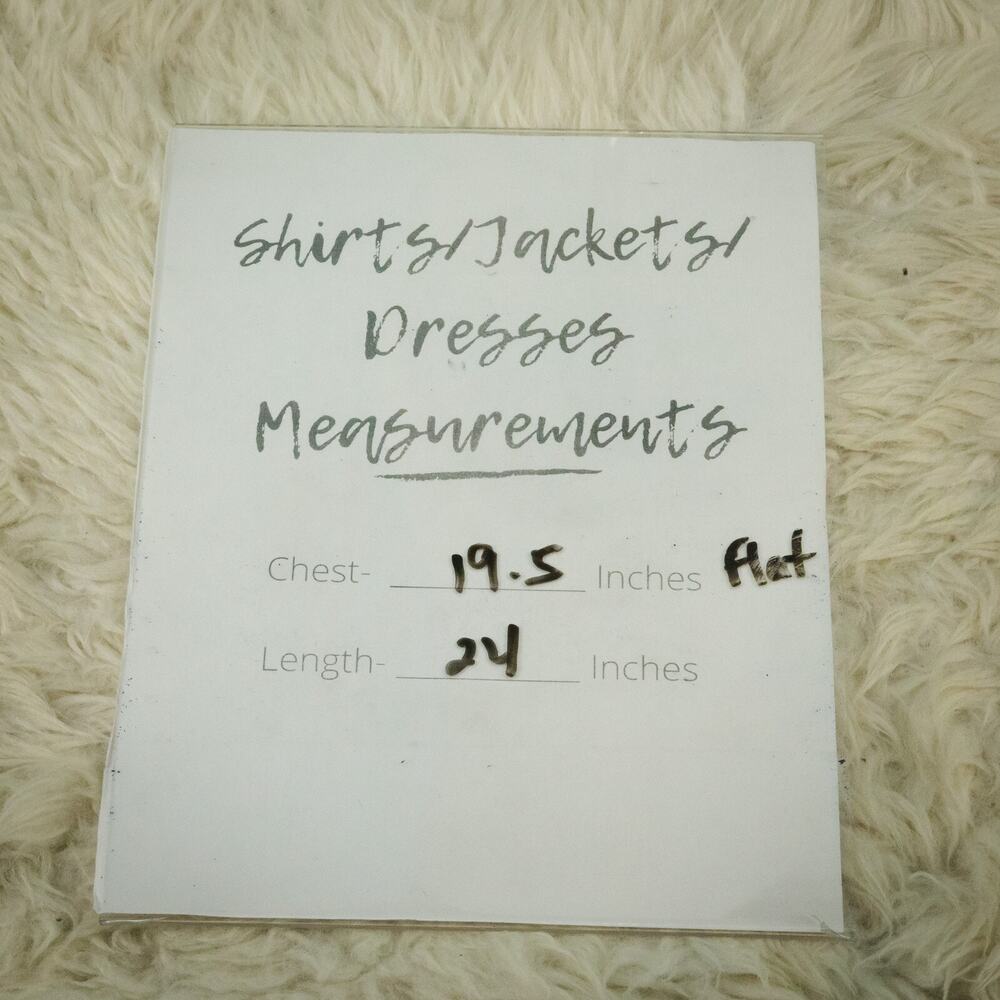 Shirts/Jackets/
Dresses
Measurements
Chest- 19.5 Inches Flat
Length- 24 Inches